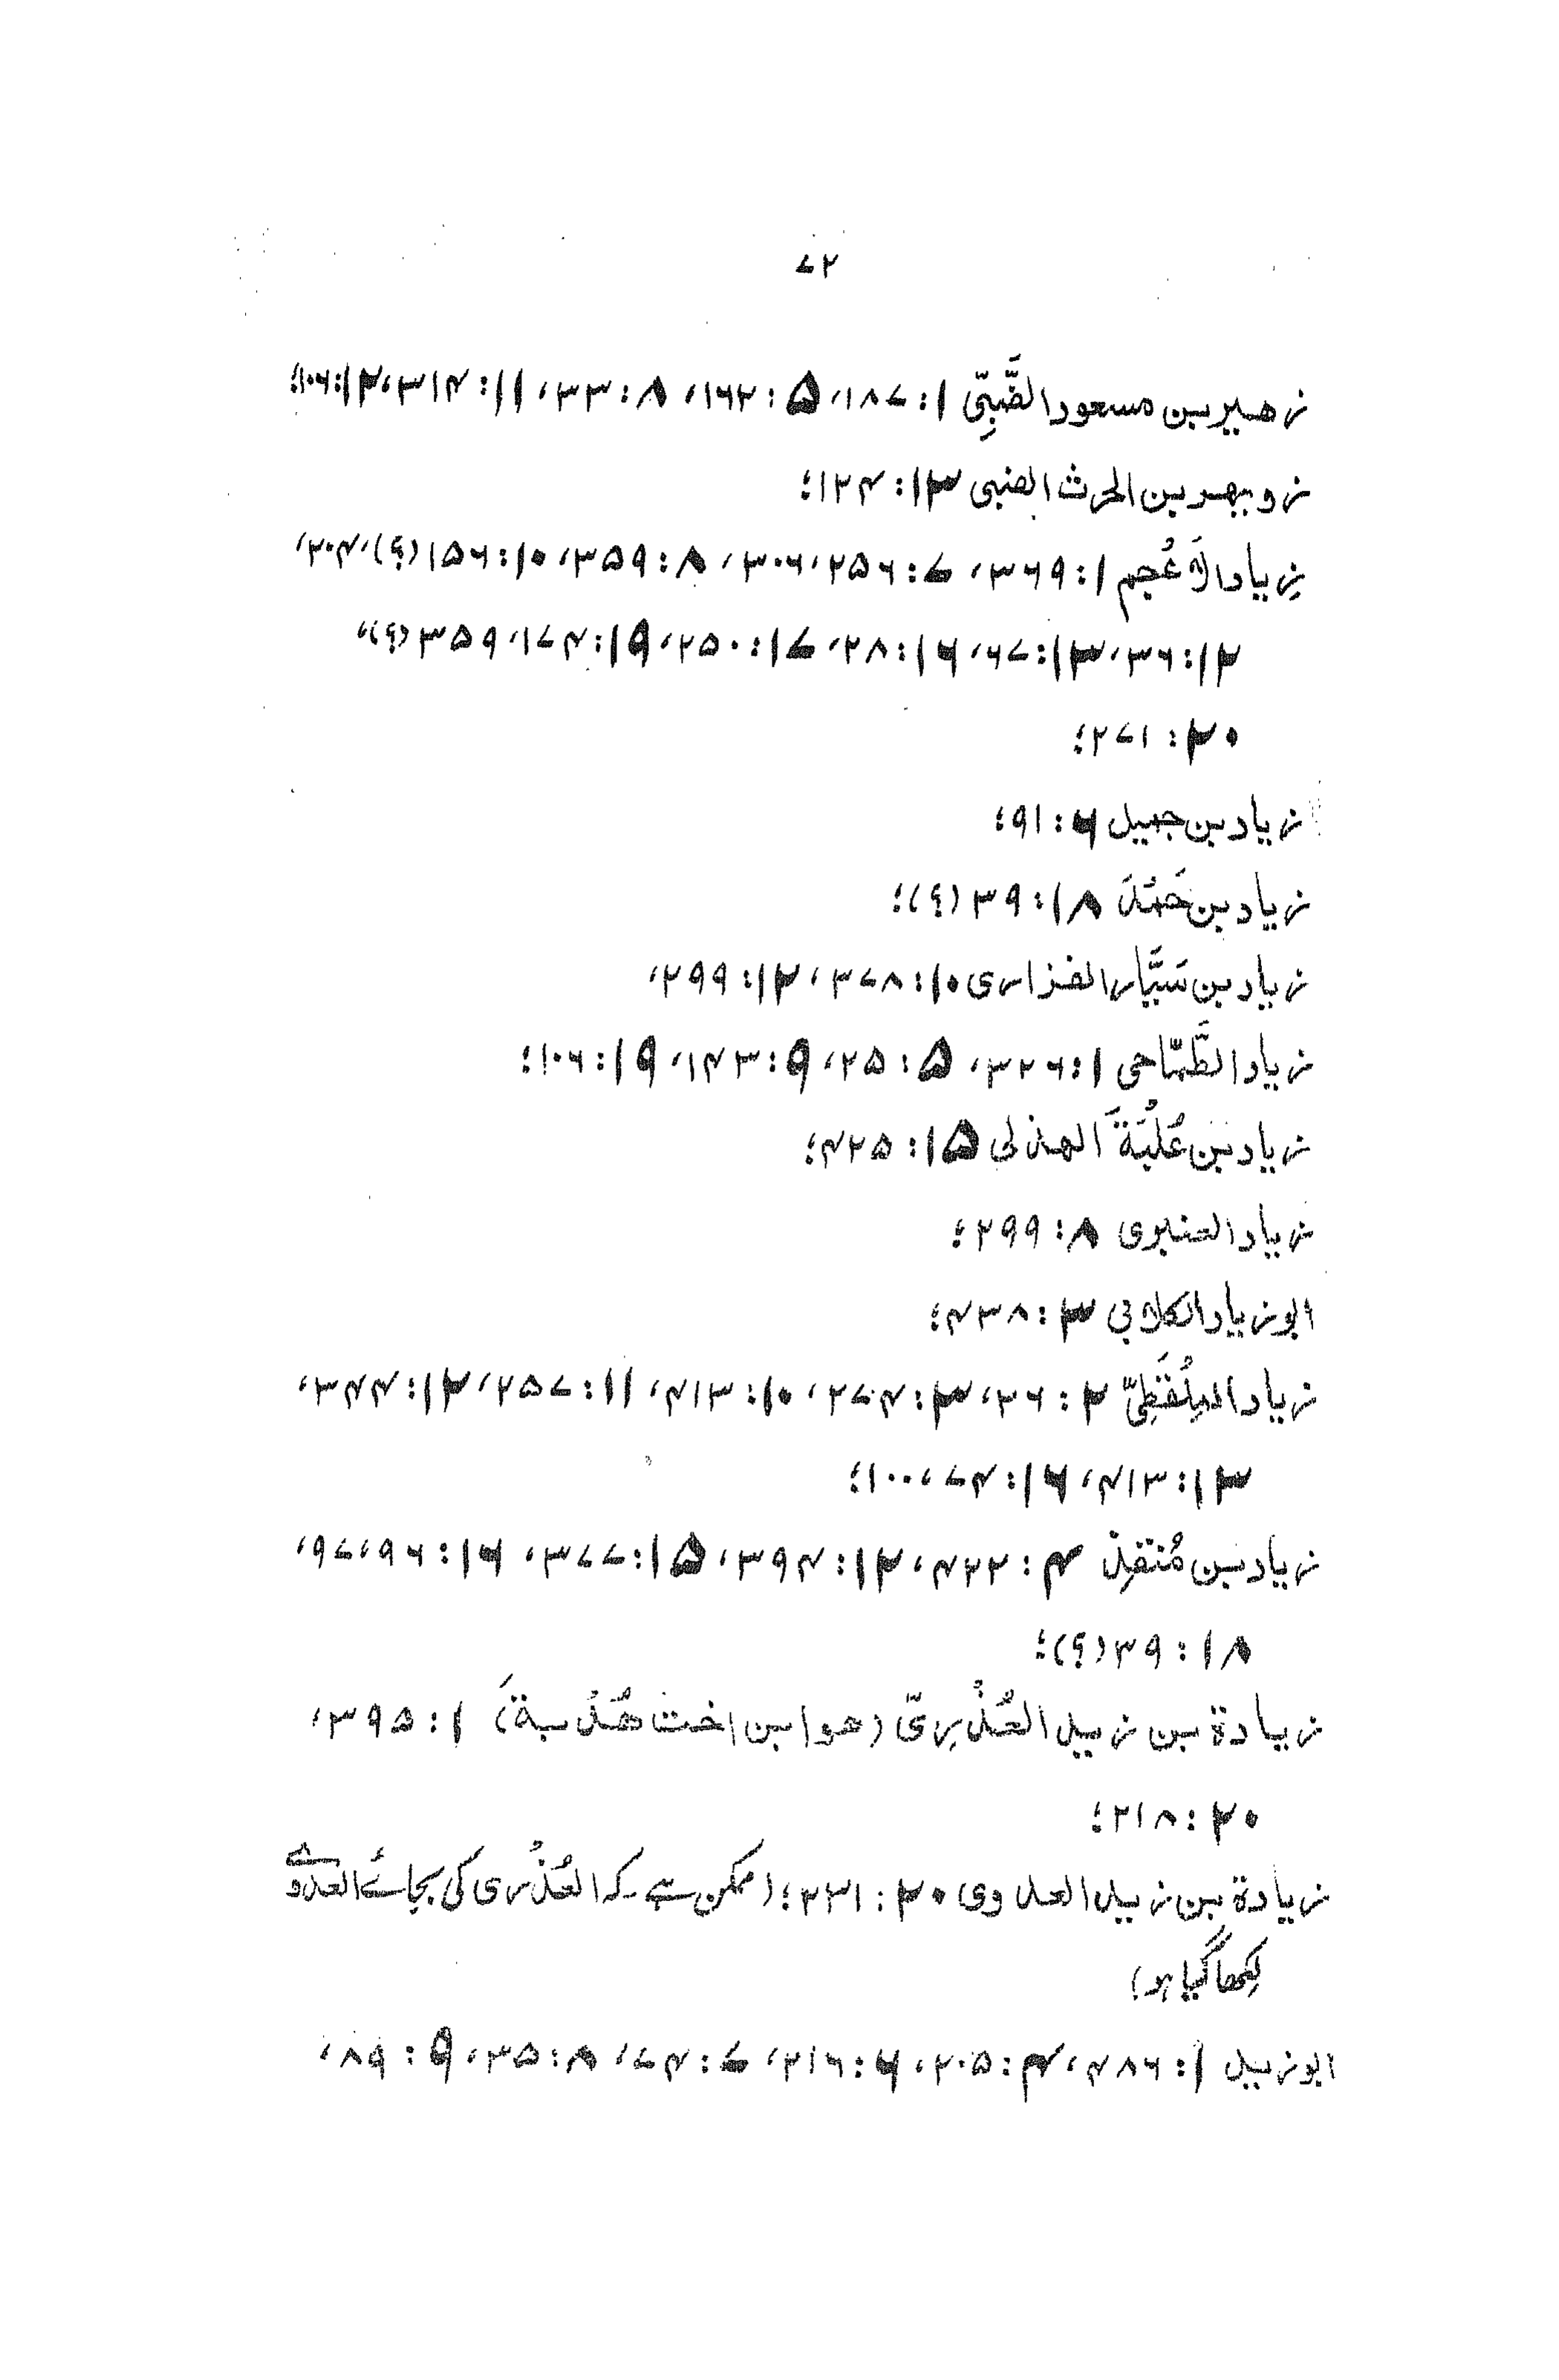 ۷۲
زهير بن مسعود الضَّبِّىّ ۱: ۱۸۷، ۵: ۱۶۲، ۸: ۳۳، ۱۱: ۳۱۴، ۱۲: ۱۰۶؛
زويهر بن الحرث الضبى ۱۳: ۱۲۴؛
زِياد الأَعْجم ۱: ۳۶۹، ۷: ۲۵۶، ۳۰۶، ۸: ۳۵۹، ۱۰: ۱۵۶ (؟)، ۲۰۴،
۱۲: ۳۶، ۱۳: ۶۷، ۱۶: ۲۸، ۱۷: ۲۵۰، ۱۹: ۱۷۴، ۳۵۹ (؟)،
۲۰: ۲۷۱؛
زياد بن جميل ۶: ۹۱؛
زياد بن حَمَل ۱۸: ۳۹ (؟)؛
زياد بن سَيَّار الفزارى ۱۰: ۳۷۸، ۱۲: ۲۹۹،
زياد الطَّمّاحى ۱: ۳۲۶، ۵: ۲۵، ۹: ۱۴۳، ۱۹: ۱۰۶؛
زياد بن عُلْبَةَ الهذلى ۱۵: ۴۲۵؛
زياد العنبرى ۸: ۲۹۹؛
ابو زياد الكلابى ۳: ۴۳۸؛
زياد المِلْقَطِىّ ۲: ۳۶، ۳: ۲۷۴، ۱۰: ۴۱۳، ۱۱: ۲۵۷، ۱۲: ۳۴۴،
۱۳: ۴۱۳، ۱۶: ۷۴، ۱۰۰؛
زياد بن مُنقذ ۴: ۴۲۲، ۱۲: ۳۹۴، ۱۵: ۳۷۷، ۱۶: ۹۶، ۹۷،
۱۸: ۳۹ (؟)؛
زيادة بن زيد العُذْرِىّ (هو ابن اخت هُدْبة) ۱: ۳۹۵،
۲۰: ۲۱۸؛
زيادة بن زيد العدوى ۲۰: ۲۳۱؛ (ممکن ہے کہ العُذْری کی بجائے العدوی
لکھا گیا ہو)
ابو زيد ۱: ۴۸۶، ۴: ۲۰۵، ۶: ۲۱۶، ۷: ۷۴، ۸: ۳۵، ۹: ۸۹،